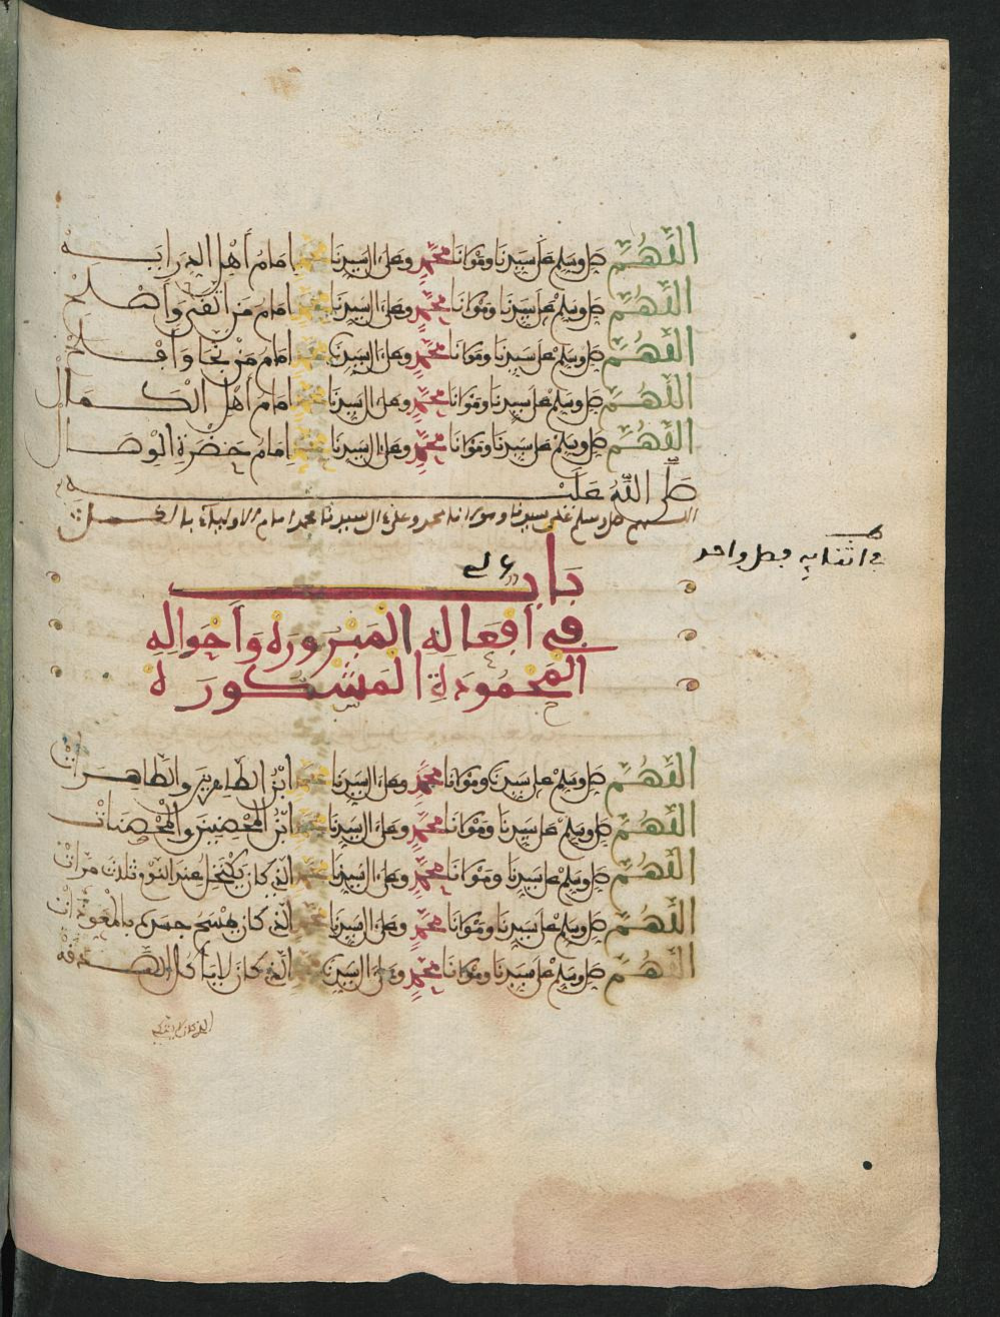 اللهم صل وسلم على سيدنا ومولانا محمد وعلى ال سيدنا محمد امام أهل الدراية
اللهم صل وسلم على سيدنا ومولانا محمد وعلى ال سيدنا محمد امام من اتقى وأصلح
اللهم صل وسلم على سيدنا ومولانا محمد وعلى ال سيدنا محمد امام من نجا وأفلح
اللهم صل وسلم على سيدنا ومولانا محمد وعلى ال سيدنا محمد امام أهل الكمال
اللهم صل وسلم على سيدنا ومولانا محمد وعلى ال سيدنا محمد امام حضرة الوصال
صلى الله عليه
اللهم صل وسلم على سيدنا ومولانا محمد وعلى ءال سيدنا محمد امام الاولياء
في اثنايه فصل واحد
باب
في أفعاله المبرورة وأحواله
المحمودة المشكورة
اللهم صل وسلم على سيدنا ومولانا محمد وعلى ال سيدنا محمد ابن الطاهرين والطاهرات
اللهم صل وسلم على سيدنا ومولانا محمد وعلى ال سيدنا محمد ابن المحصنين والمحصنات
اللهم صل وسلم على سيدنا ومولانا محمد وعلى ال سيدنا محمد الذي كان يكتحل عند النوم ثلاث مرات
اللهم صل وسلم على سيدنا ومولانا محمد وعلى ال سيدنا محمد الذي كان يمسح جسده بالمعوذات
اللهم صل وسلم على سيدنا ومولانا محمد وعلى ال سيدنا محمد الذي كان لا ياكل الصدقة
الذي كان